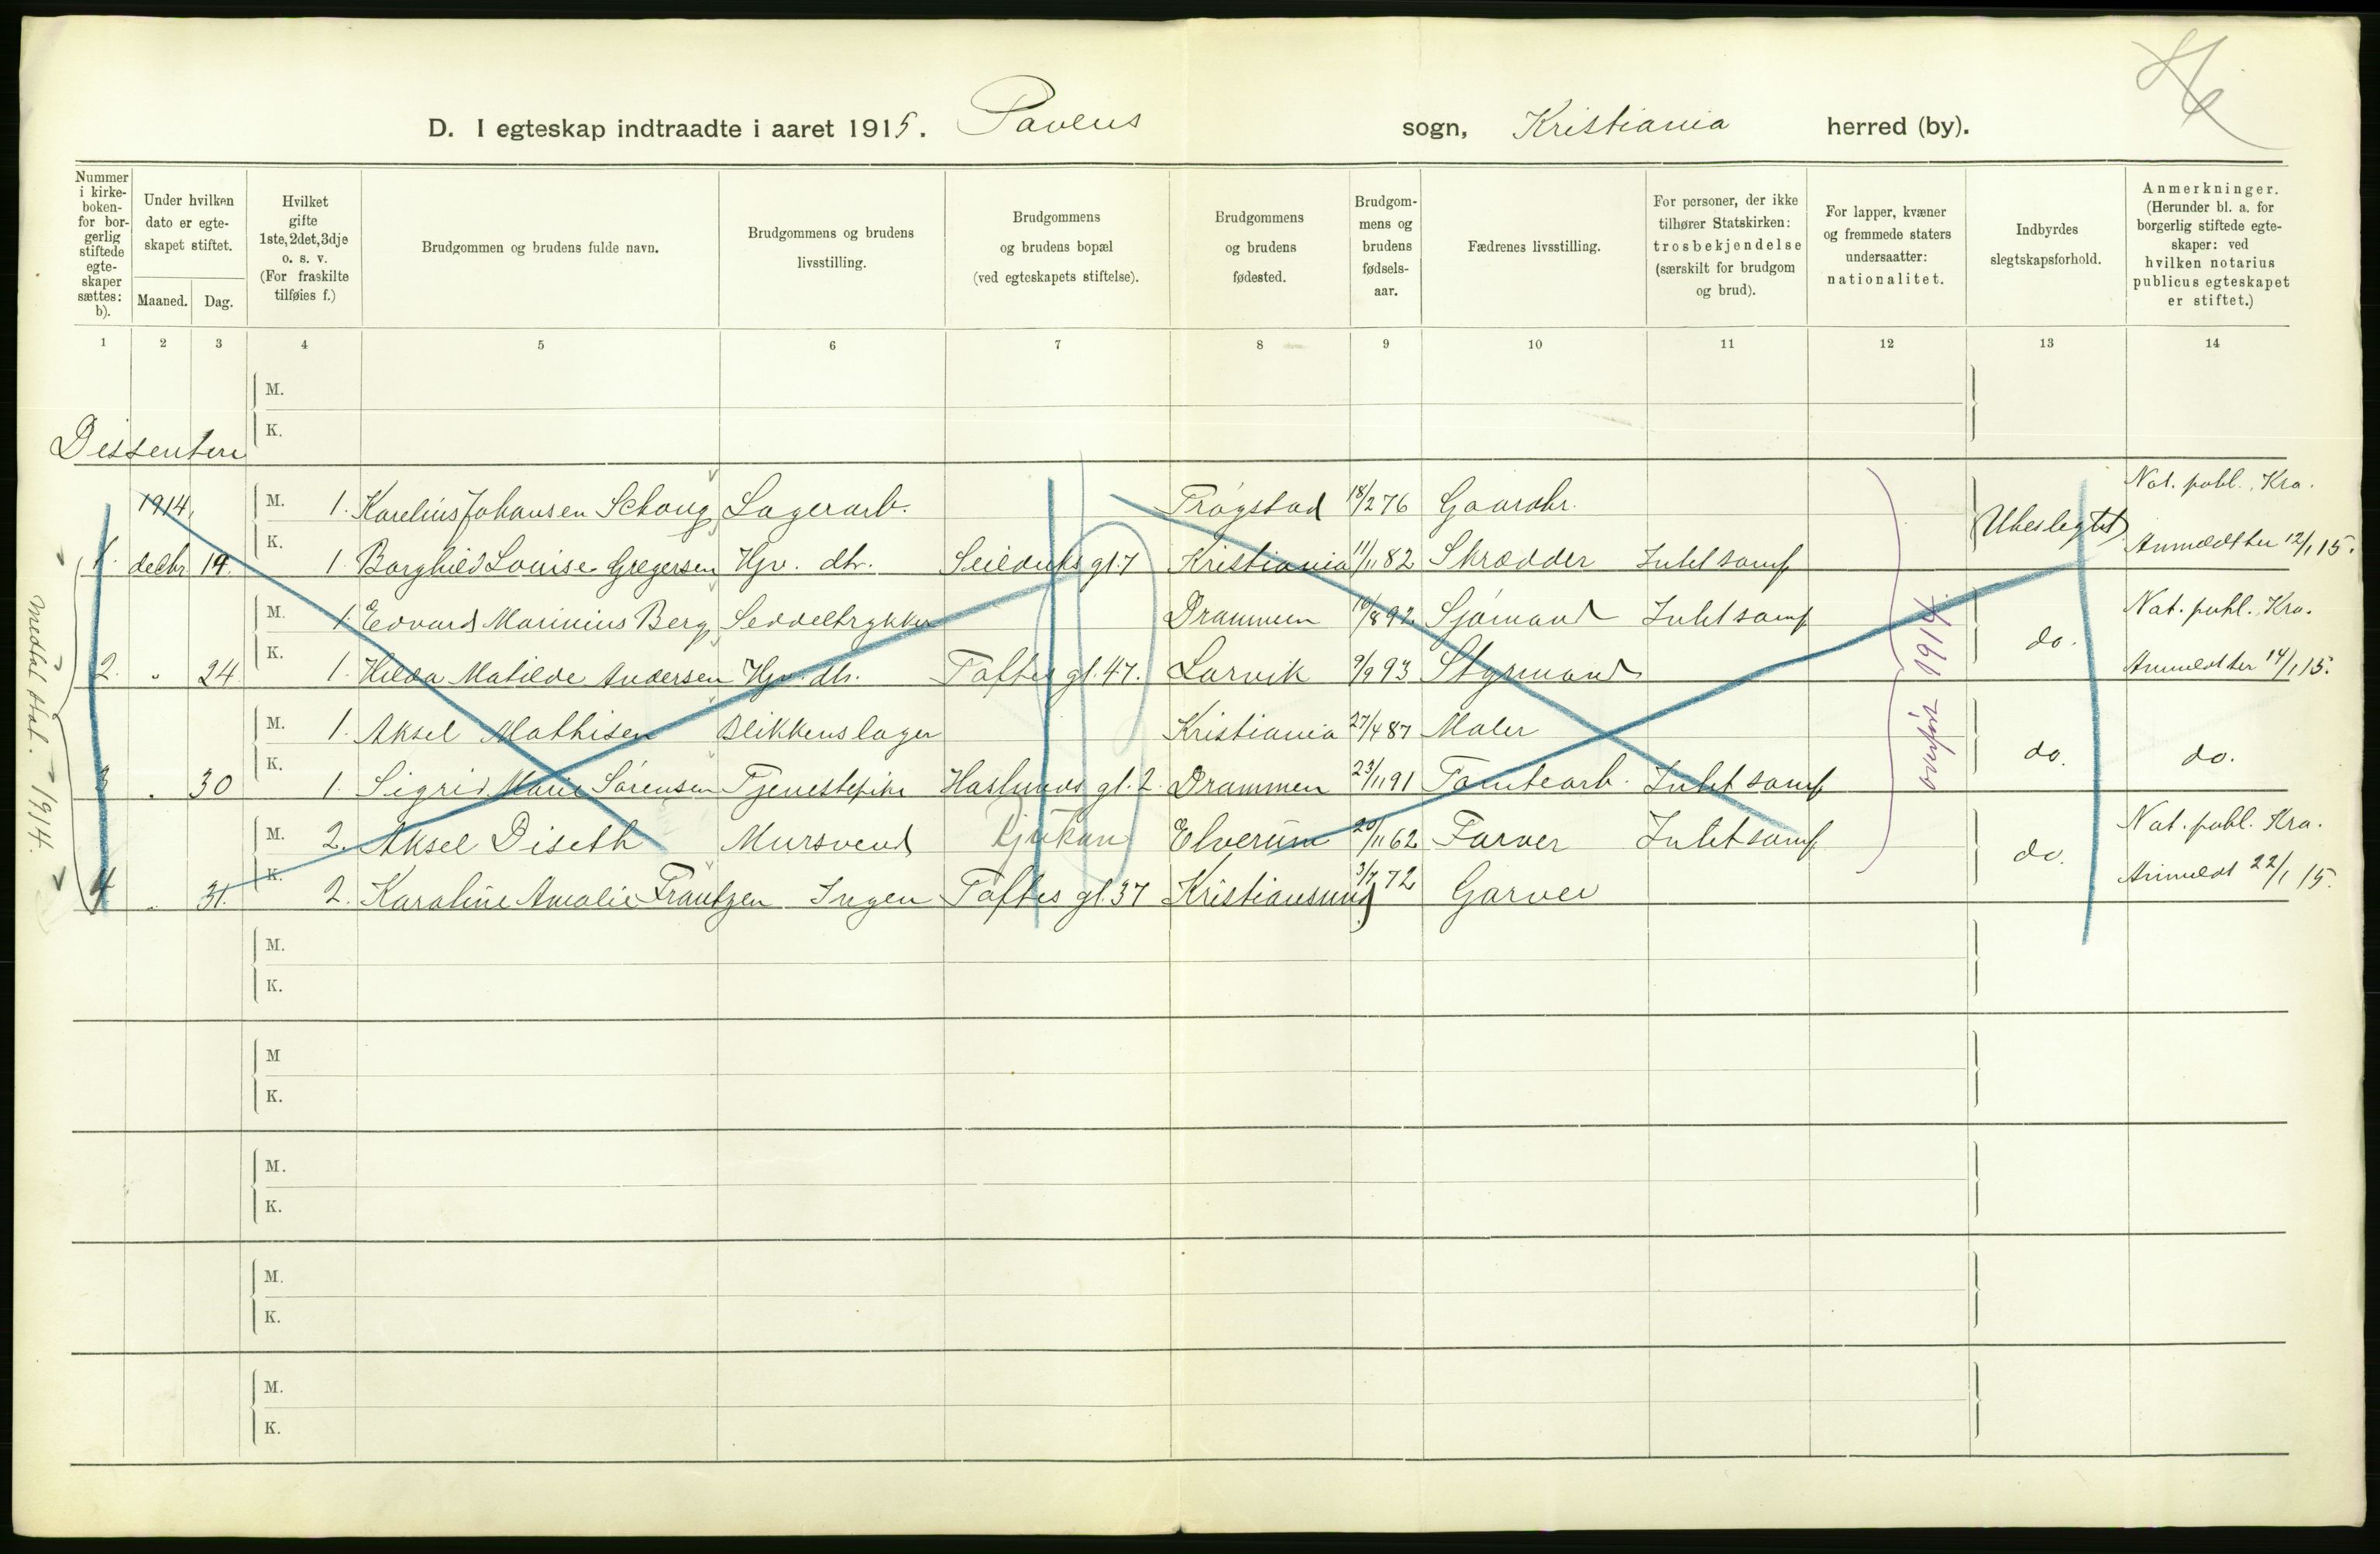 D. I egteskap indtraadte i aaret 1915. Paulus sogn, Kristiania herred (by).
Nummer i kirke-boken- for bor-gerlig stiftede egte-skaper sættes: b).
Under hvilken dato er egte-skapet stiftet.
Maaned. Dag.
Hvilket gifte 1ste, 2det, 3dje o. s. v. (For fraskilte tilføies f.)
Brudgommen og brudens fulde navn.
Brudgommens og brudens livsstilling.
Brudgommens og brudens bopæl (ved egteskapets stiftelse).
Brudgommens og brudens fødested.
Brudgom-mens og brudens fødsels-aar.
Fædrenes livsstilling.
For personer, der ikke tilhører Statskirken: trosbekjendelse (særskilt for brudgom og brud).
For lapper, kvæner og fremmede staters undersaatter: nationalitet.
Indbyrdes slegtskapsforhold.
Anmerkninger. (Herunder bl. a. for borgerlig stiftede egte-skaper: ved hvilken notarius publicus egteskapet er stiftet.)
1 2 3 4 5 6 7 8 9 10 11 12 13 14
M.
K.
Dissentere
1914, M. 1. Karelius Johansen Schoug Lagerarb. Trøgstad 18/2 76 Gaardbr. Ubeslegtet Not. publ. Kra.
1. decbr 19. K. 1. Borghild Louise Gregersen Hjv. dtr. Seilduks gt. 7 Kristiania 11/11 82 Skrædder Intet samf Anmeldt her 12/1 15.
M. 1. Edvard Marinius Berg Seddeltrykker Drammen 16/8 92 Sjømand Intet samf do. Not. publ. Kra.
2. " 24. K. 1. Hilda Matilde Andersen Hjv. dtr. Toftes gt. 47. Larvik 9/9 93 Styrmand Anmeldt her 14/1 15.
M. 1. Aksel Mathisen Blikkenslager Kristiania 27/4 87 Maler do. do.
3 " 30 K. 1. Sigrid Marie Sørensen Tjenestepike Haslunds gt. 2. Drammen 23/11 91 Tomtearb. Intet samf
M. 2. Aksel Diseth Mursvend Rjukan Elverum 20/11 62 Farver Intet samf do. Not. publ. Kra.
4 " 31. K. 2. Karoline Amalie Frantzen Ingen Toftes gt. 37 Kristiansund 3/7 72 Garver Anmeldt 22/1 15.
medtat stat. 1914.
overført 1914.
M.
K.
M
K.
M.
K.
M.
K.
M.
K.